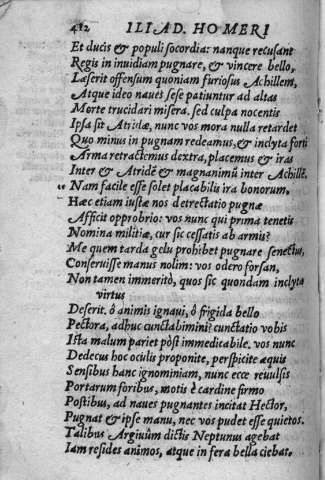 412 ILIAD. HOMERI
Et ducis & populi socordia: nanque recusant
Regis in inuidiam pugnare, & vincere bello,
Læserit offensum quoniam furiosus Achillem,
Atque ideo naues sese patiuntur ad altas
Morte trucidari misera. sed culpa nocentis
Ipsa sit Atridæ, nunc vos mora nulla retardet
Quo minus in pugnam redeamus, & inclyta forti
Arma retractemus dextra, placemus & iras
Inter & Atridē & magnanimū inter Achillē.
Nam facile esse solet placabilis ira bonorum,
Hæc etiam iustæ nos detrectatio pugnæ
Afficit opprobrio: vos nunc qui prima tenetis
Nomina militiæ, cur sic cessatis ab armis?
Me quem tarda gelu prohibet pugnare senectus,
Conseruisse manus nolim: vos odero forsan,
Non tamen immeritò, quos sic quondam inclyta
virtus
Deserit. ô animis ignaui, ô frigida bello
Pectora, adhuc cunctabimini? cunctatio vobis
Ista malum pariet pòst immedicabile. vos nunc
Dedecus hoc oculis proponite, perspicite æquis
Sensibus hanc ignominiam, nunc ecce reuulsis
Portarum foribus, motis è cardine firmo
Postibus, ad naues pugnantes incitat Hector,
Pugnat & ipse manu, nec vos pudet esse quietos.
Talibus Argiuûm dictis Neptunus agebat
Iam resides animos, atque in fera bella ciebat.